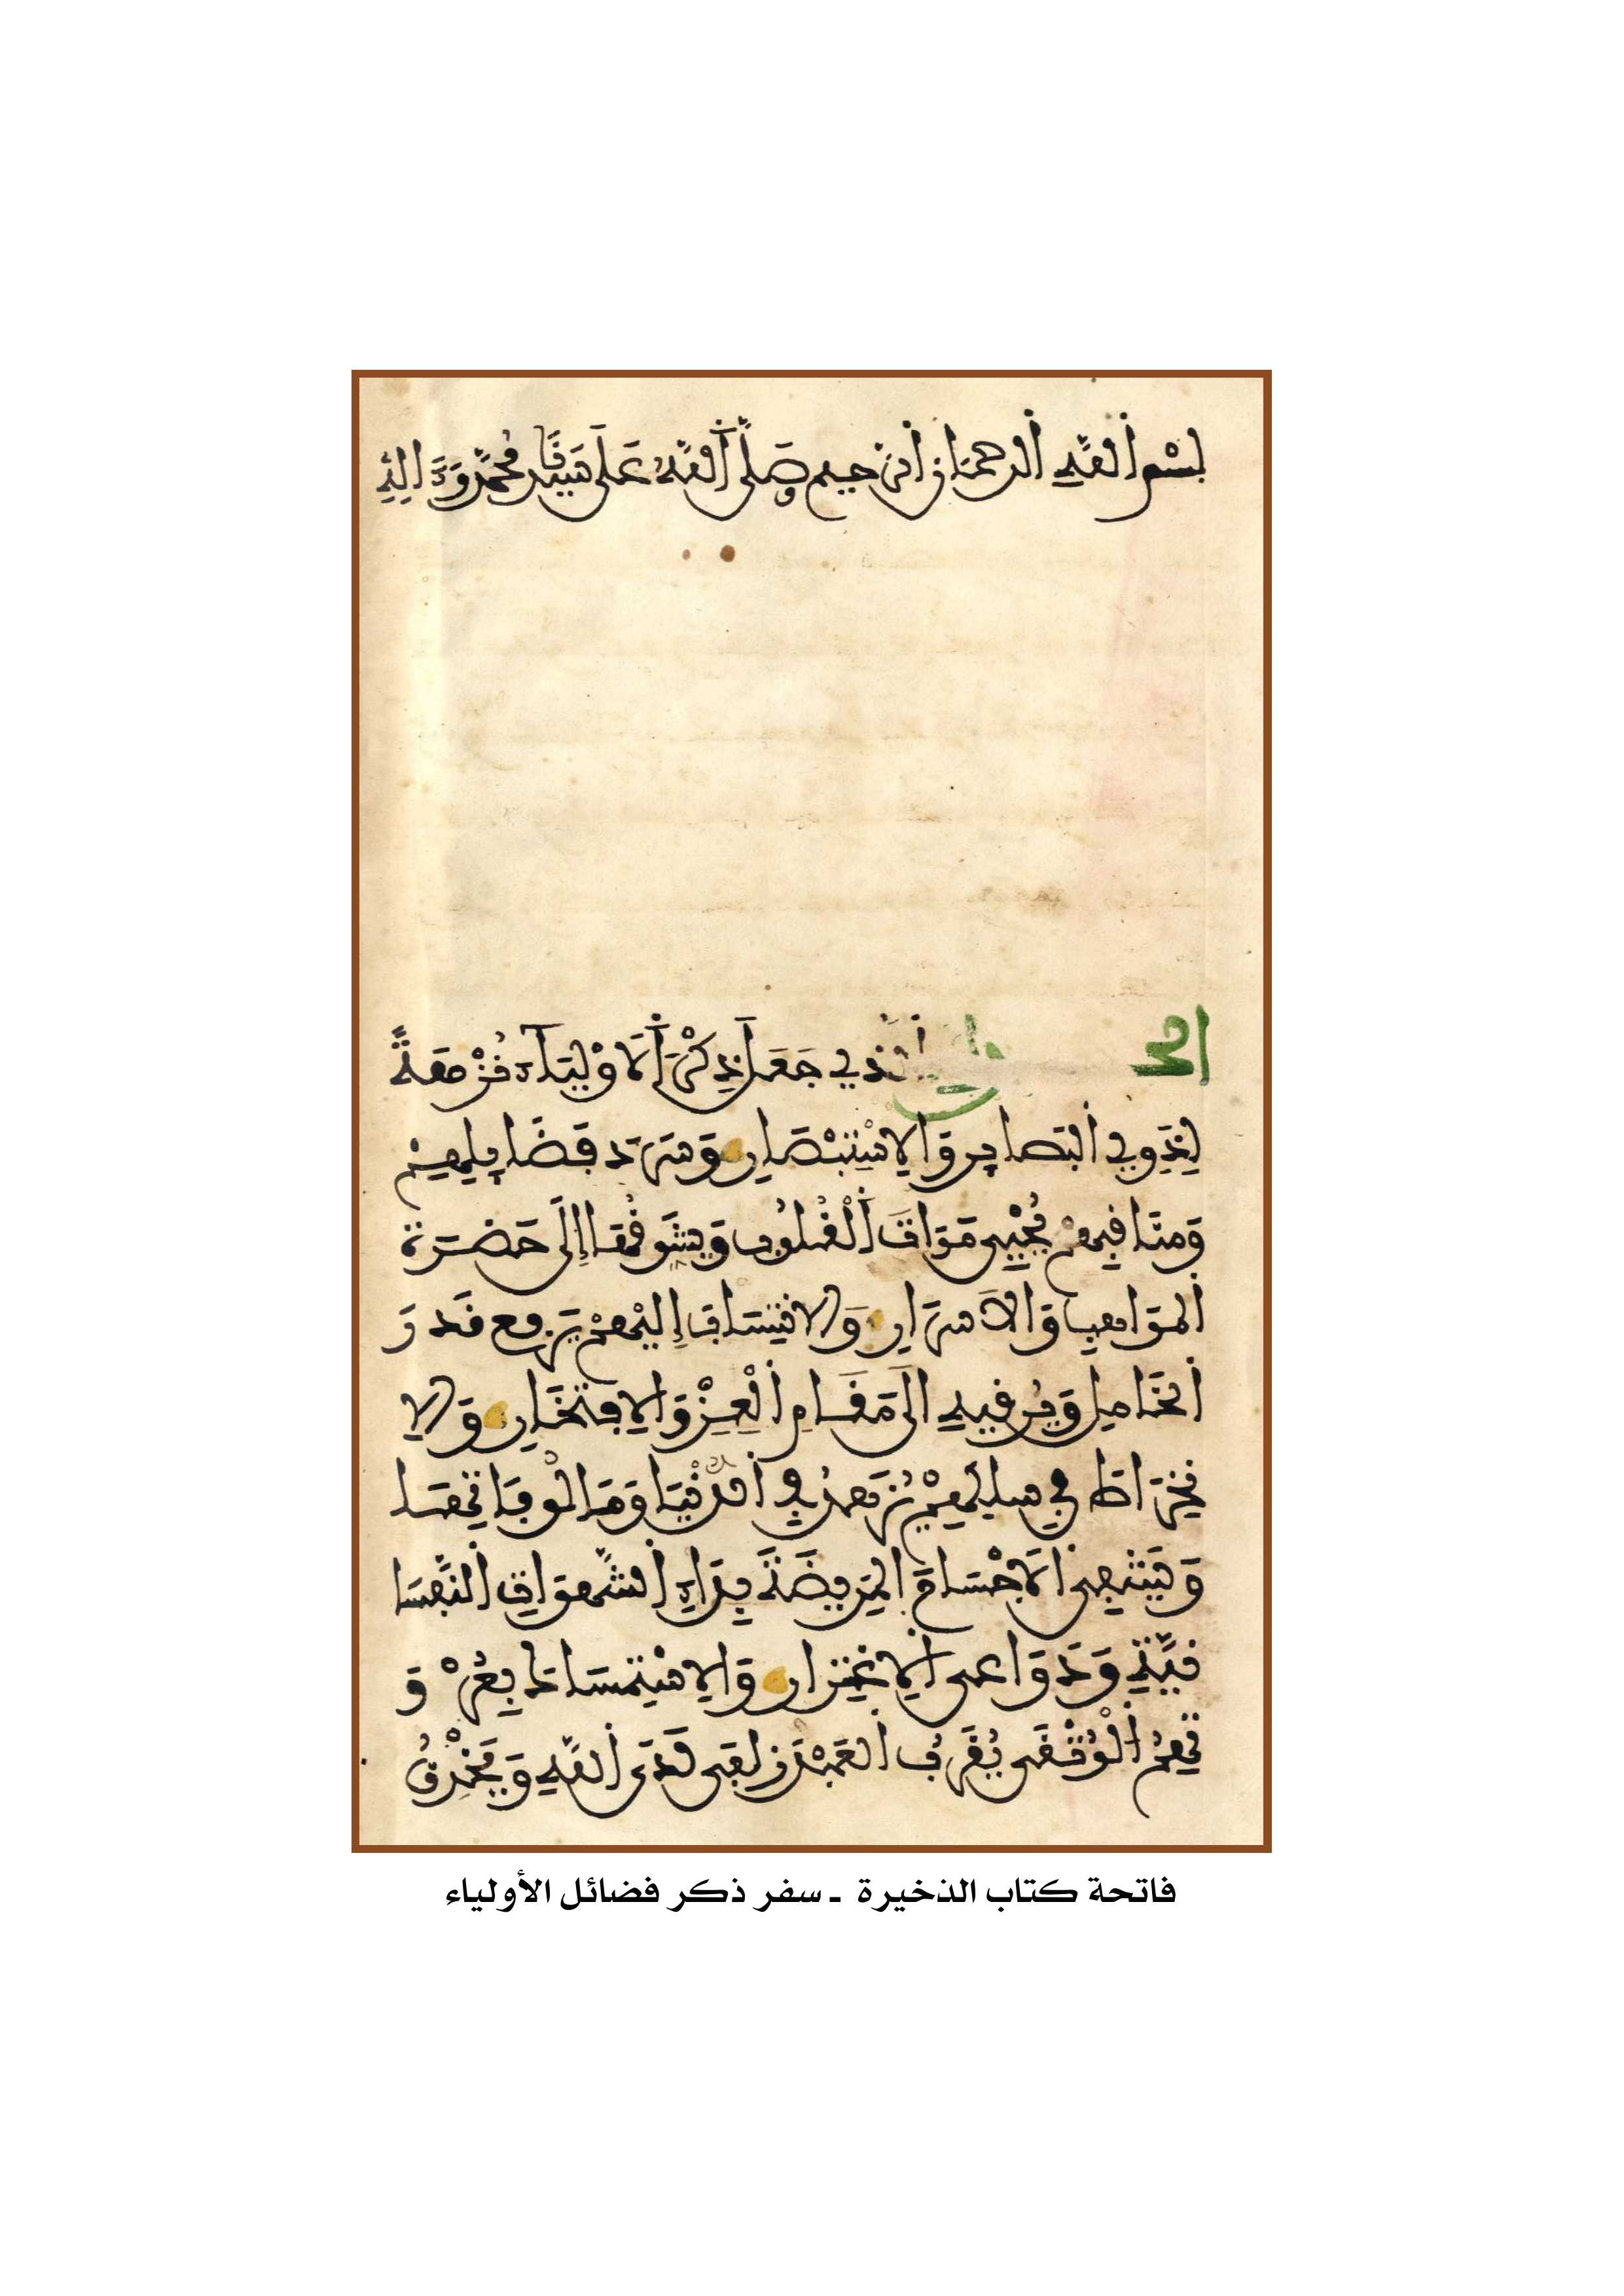 بِسْمِ اللَّهِ الرَّحْمَنِ الرَّحِيمِ صَلَّى اللَّهُ عَلَى سَيِّدِنَا مُحَمَّدٍ وَآلِهِ
الحمد لله الَّذِي جَعَلَ ذِكْرَ الأَوْلِيَاءِ نُزْهَةً
لِذَوِي الْبَصَائِرِ وَالاِسْتِبْصَارِ وَسَرْدَ فَضَائِلِهِمْ
وَمَنَاقِبِهِمْ يُحْيِي مَوَاتَ الْقُلُوبِ وَيُشَوِّقُهَا إِلَى حَضْرَةِ
الْمَوَاهِبِ وَالأَسْرَارِ وَالاِنْتِسَابَ إِلَيْهِمْ يَرْفَعُ قَدْرَ
الْخَامِلِ وَيُرَقِّيهِ إِلَى مَقَامِ الْعِزِّ وَالاِفْتِخَارِ وَالاِ
نْخِرَاطَ فِي سِلْكِهِمْ يُزَهِّدُ فِي الدُّنْيَا وَمَأْلُوفَاتِهَا
وَيَشْفِي الأَجْسَامَ الْمَرِيضَةَ بِدَاءِ الشَّهَوَاتِ النَّفْسَا
نِيَّةِ وَدَوَاعِي الاِغْتِرَارِ وَالاِسْتِمْسَاكَ بِعُرْوَ
تِهِمُ الْوُثْقَى يُقَرِّبُ الْعَبْدَ زُلْفَى لَدَى اللَّهِ وَيَخْرِقُ
فاتحة كتاب الذخيرة ـ سفر ذكر فضائل الأولياء